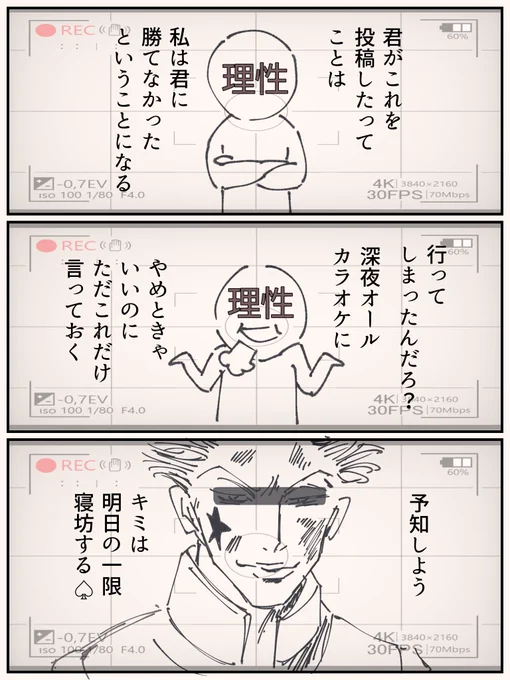 REC
60%
君がこれを
投稿したって
ことは
理性
私は君に
勝てなかった
ということになる
-0,7EV
iso 100 1/80 F4.0
4K 3840×2160
30FPS 70Mbps
REC
60%
行って
しまったんだろ?
深夜オール
カラオケに
理性
やめときゃ
いいのに
ただこれだけ
言っておく
-0,7EV
iso 100 1/80 F4.0
4K 3840×2160
30FPS 70Mbps
REC
60%
予知しよう
キミは
明日の一限
寝坊する♤
-0,7EV
iso 100 1/80 F4.0
4K 3840×2160
30FPS 70Mbps